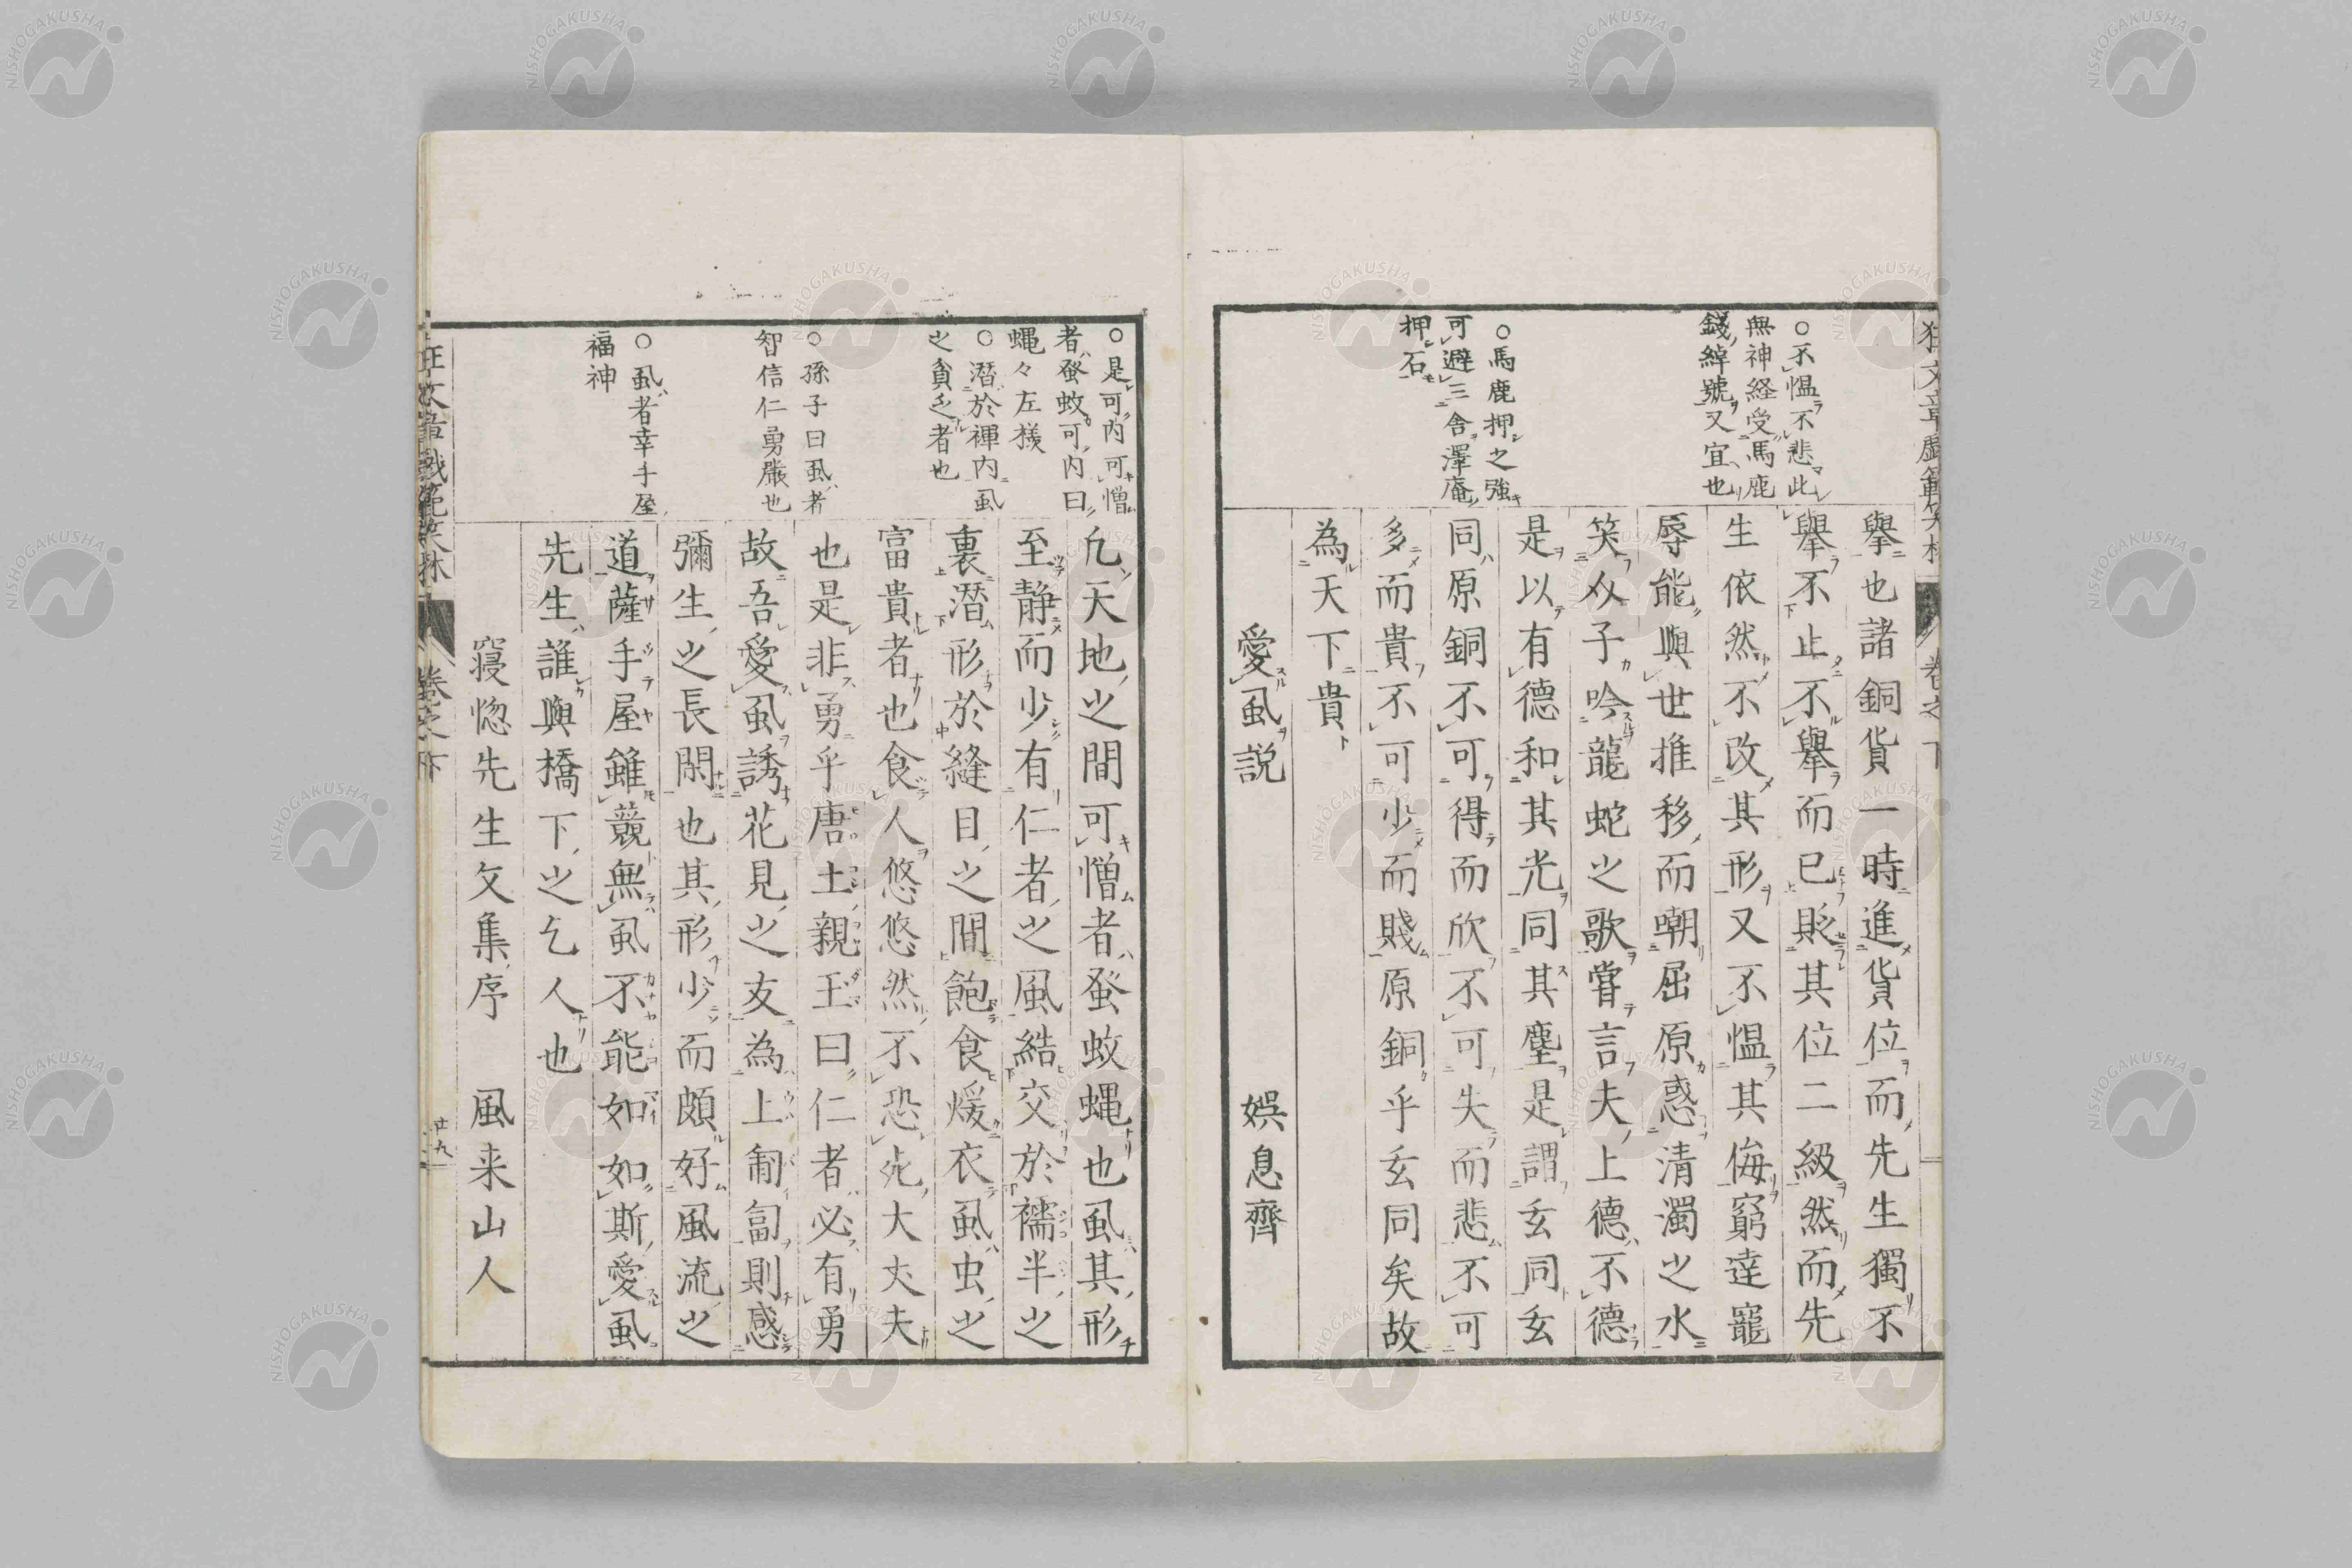 擧也諸銅貨一時進貨位而先生獨不
擧不止不擧而已貶其位二級然而先
生依然不改其形又不愠其侮窮達寵
辱能與世推移而嘲屈原惑清濁之水
笑𠆢子吟龍蛇之歌嘗言夫上德不德
是以有德和其光同其塵是謂玄同玄
同原銅不可得而欣不可失而悲不可
多而貴不可少而賤原銅乎玄同矣故
為天下貴
愛虱説 娯息齊
○不愠不悲此
無神経受馬鹿
錢綽號又宜也
○馬鹿押之強
可避三舎澤庵
押石
凢天地之間可憎者蚤蚊蝿也虱其形
至静而少有仁者之風結交於襦半之
裏潜形於縫目之間飽食煖衣虱虫之
富貴者也食人悠悠然不恐死大丈夫
也是非勇乎唐土親王曰仁者必有勇
故吾愛虱誘花見之友為上匍匐則惑
彌生之長閑也其形少而頗好風流之
道薩手屋雖競無虱不能如如斯愛虱
先生誰與橋下之乞人也
寝惚先生文集序 風来山人
○是可内可憎
者蚤蚊可内曰
蝿々左様
○潜於褌内虱
之貧乏者也
○孫子曰虱者
智信仁勇嚴也
○虱者幸手屋
福神
卷之下
廿九